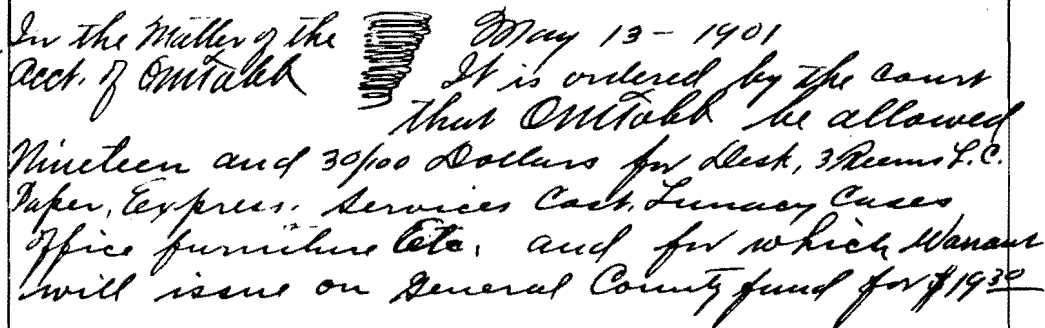 In the Matter of the
Acct. of OM Tabb
May 13 - 1901
It is ordered by the Court
that OM Tabb be allowed
Nineteen and 30/100 Dollars for Desk, 3 Reems L.C.
Paper, Express. Services Cost. Lunacy Cases
office furniture Etc. and for which Warrant
will issue on General County fund for $19 30